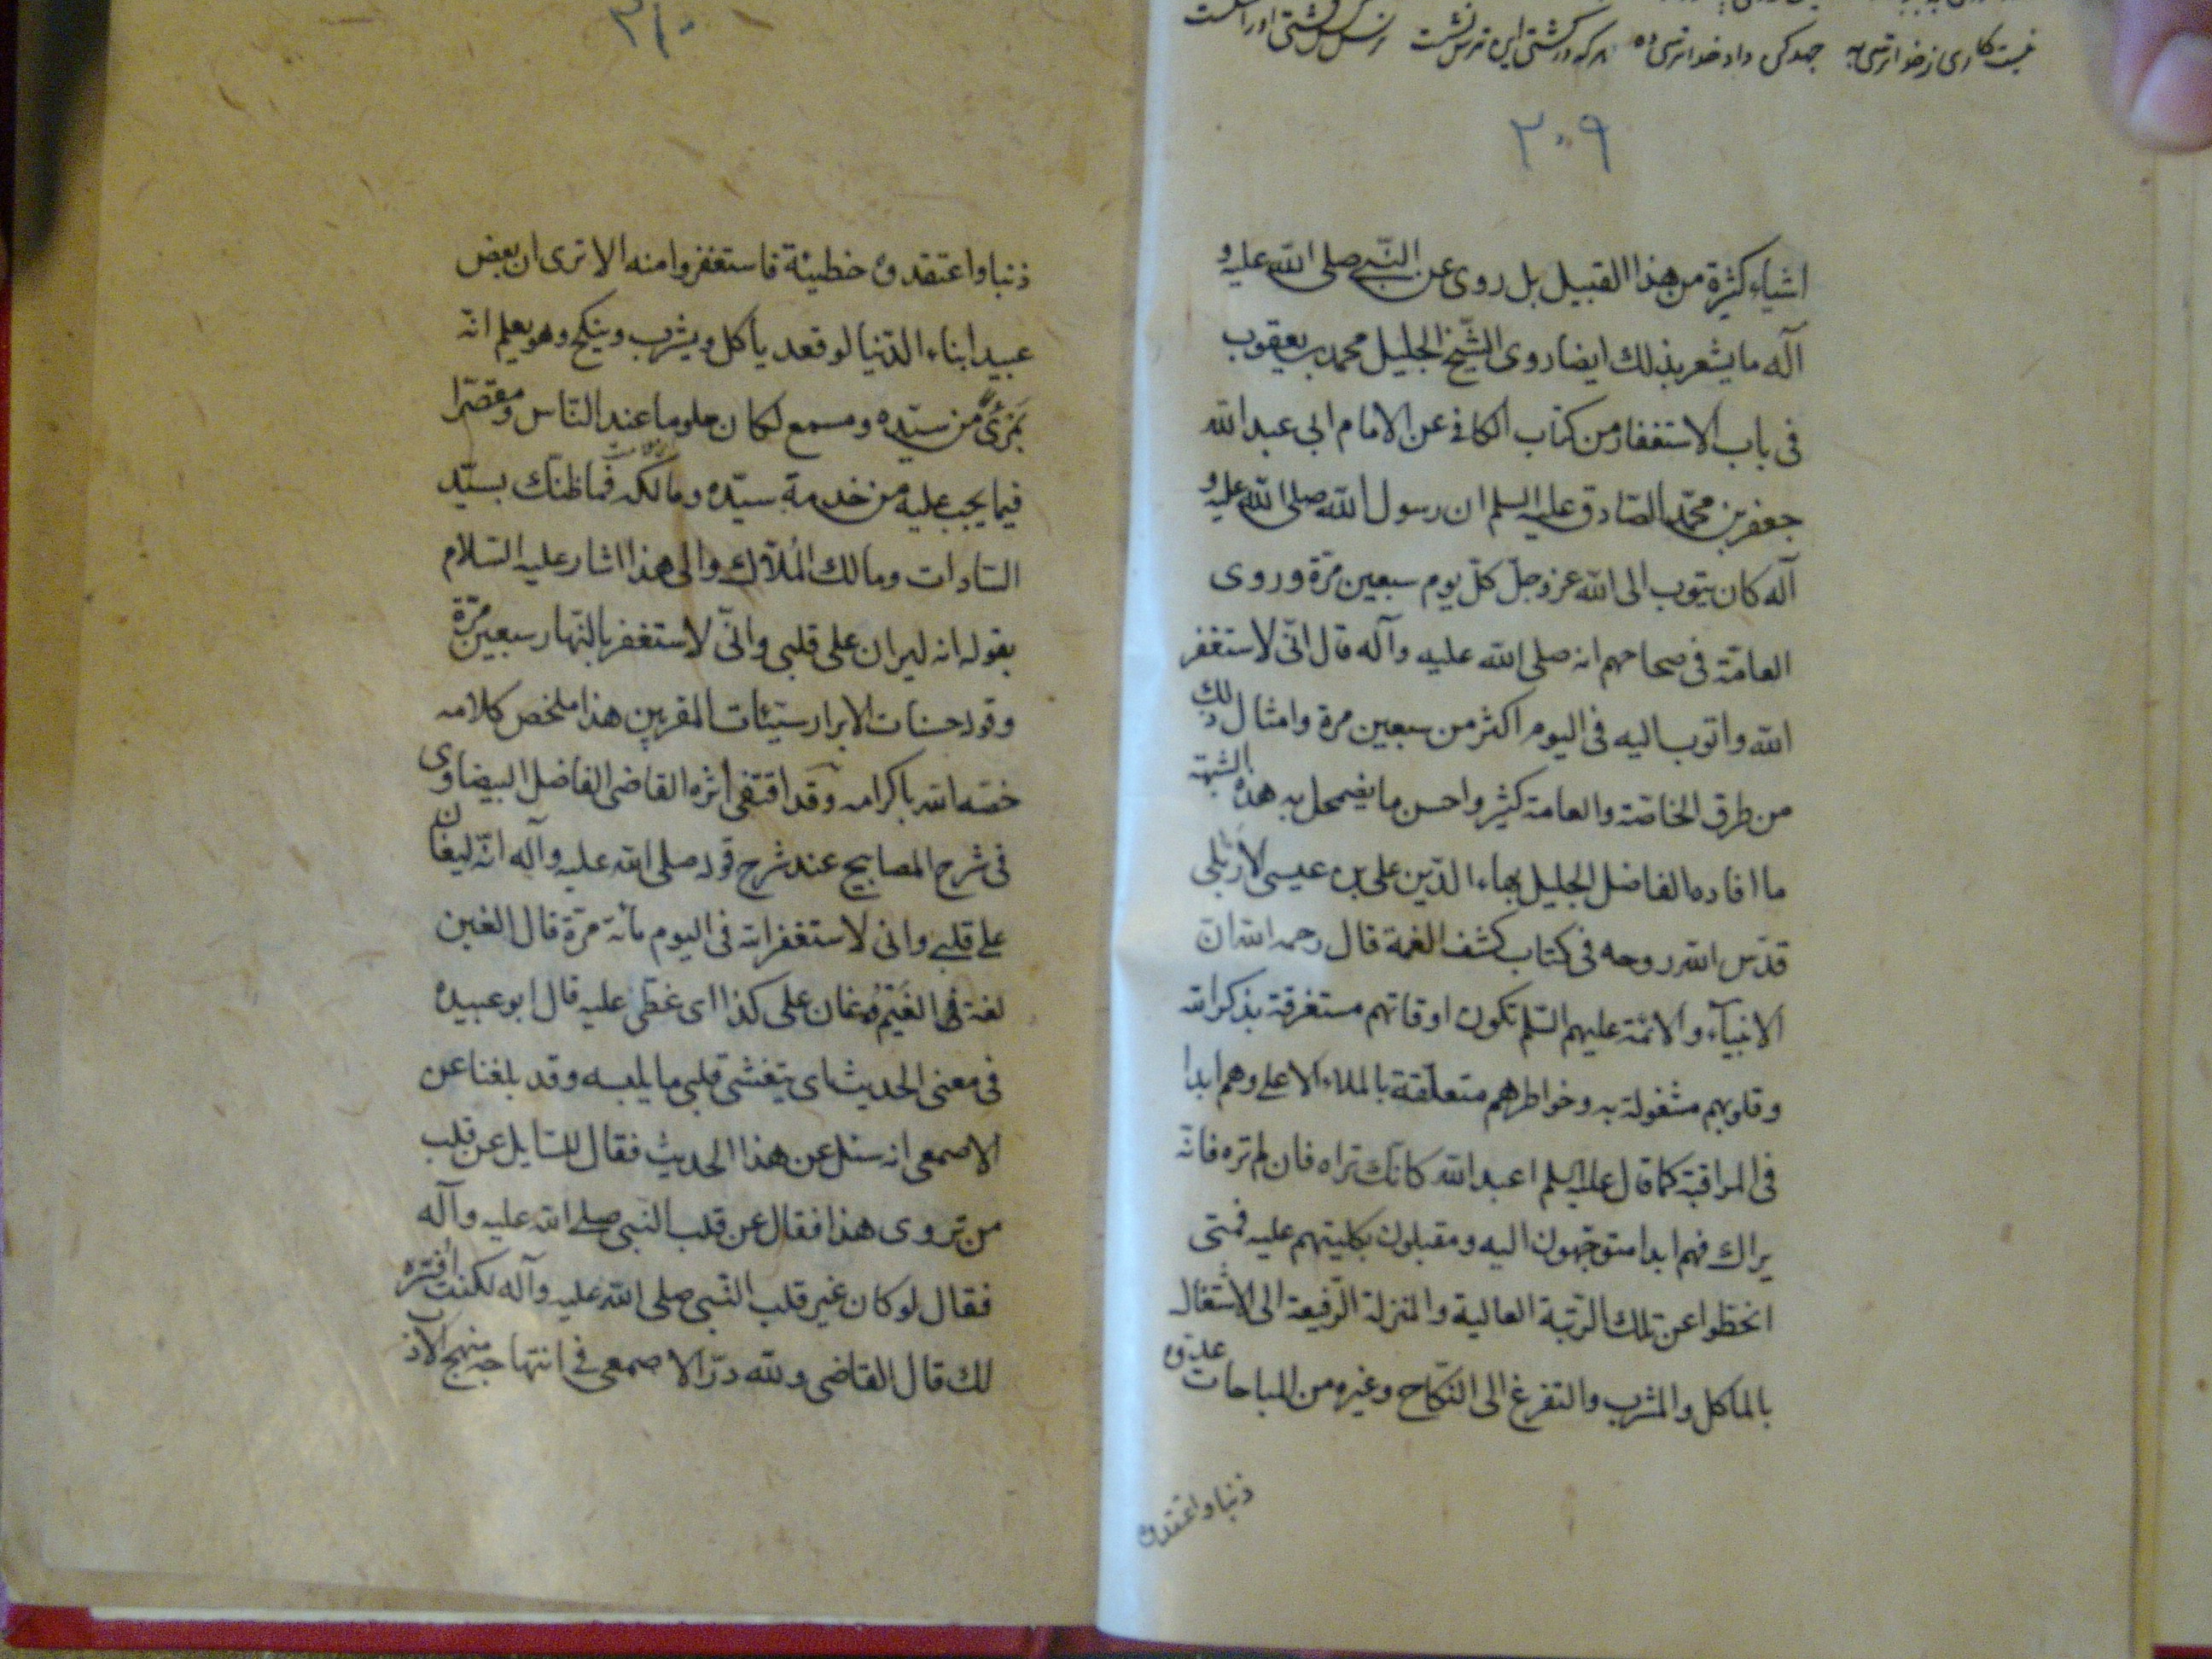 نیست کاری ز خدا ترسی به جهد کن داد خدا ترسی ده هر که در کشتی این ترس نشست
۳۰۹
اشياء كثيرة من هذا القبيل بل روى عن النّبي صلى الله عليه و
آله ما يشعر بذلك ايضا روى الشّيخ الجليل محمد بن يعقوب
فى باب الاستغفار من كتاب الكافي عن الامام ابى عبد الله
جعفر بن محمّد الصّادق عليه السلم ان رسول الله صلى الله عليه و
آله كان يتوب الى الله عز وجلّ كلّ يوم سبعين مرّة وروى
العامّة فى صحاحهم انه صلى الله عليه وآله قال انّى لاستغفر
الله واتوب اليه فى اليوم اكثر من سبعين مرة وامثال ذلك
من طرق الخاصّة والعامة كثير واحسن ما يضمحل به هذه الشبهة
ما افاده الفاضل الجليل بهاء الدّين على بن عيسى الاربلى
قدّس الله روحه فى كتاب كشف الغمة قال رحمه الله ان
الانبيآء والائمّة عليهم السّلم تكون اوقاتهم مستغرقة بذكر الله
وقلوبهم مشغولة به وخواطرهم متعلّقة بالملاء الاعلى وهم ابدا
فى المراقبة كما قال عليه السلم اعبد الله كانّك تراه فان لم تره فانّه
يراك فهم ابدا متوجّهون اليه ومقبلون بكليتهم عليه فمتى
انحطّوا عن تلك الرّتبة العالية والمنزلة الرّفيعة الى الاشتغال
بالماكل والمشرب والتفرغ الى النّكاح وغيره من المباحات عدّوه
ذنبا واعتقدوه
۳۱۰
ذنبا واعتقدوه خطيئة فاستغفروا منه الا ترى ان بعض
عبيد ابناء الدّنيا لو قعد ياكل ويشرب وينكح وهو يعلم انّه
بمرئً من سيّده ومسمع لكان ملوما عند النّاس ومقصّرا
فيما يجب عليه من خدمة سيّده ومالكه فما ظنّك بسيّد
السّادات ومالك المُلّاك والى هذا اشار عليه السّلام
بقوله انه ليران على قلبى وانّى لاستغفر بالنّهار سبعين مرّة
وقوله حسنات الابرار سيّئات المقربين هذا ملخص كلامه
خصّه الله باكرامه وقد اقتفى اثره القاضى الفاضل البيضاوى
فى شرح المصابيح عند شرح قوله صلى الله عليه وآله انّه ليغان
على قلبي وانى لاستغفر الله فى اليوم مائة مرّة قال الغين
لغة فى الغَيْم وغان على كذا اى غطّى عليه قال ابو عبيده
فى معنى الحديث اى يتغشى قلبى ما يلبسه وقد بلغنا عن
الاصمعى انه سئل عن هذا الحديث فقال للسّايل عن قلب
من تروى هذا فقال عن قلب النّبى صلى الله عليه وآله
فقال لو كان غير قلب النّبى صلى الله عليه وآله لكنت افسّره
لك قال القاضى ولله درّ الاصمعى فى انتهاجه منهج الادب